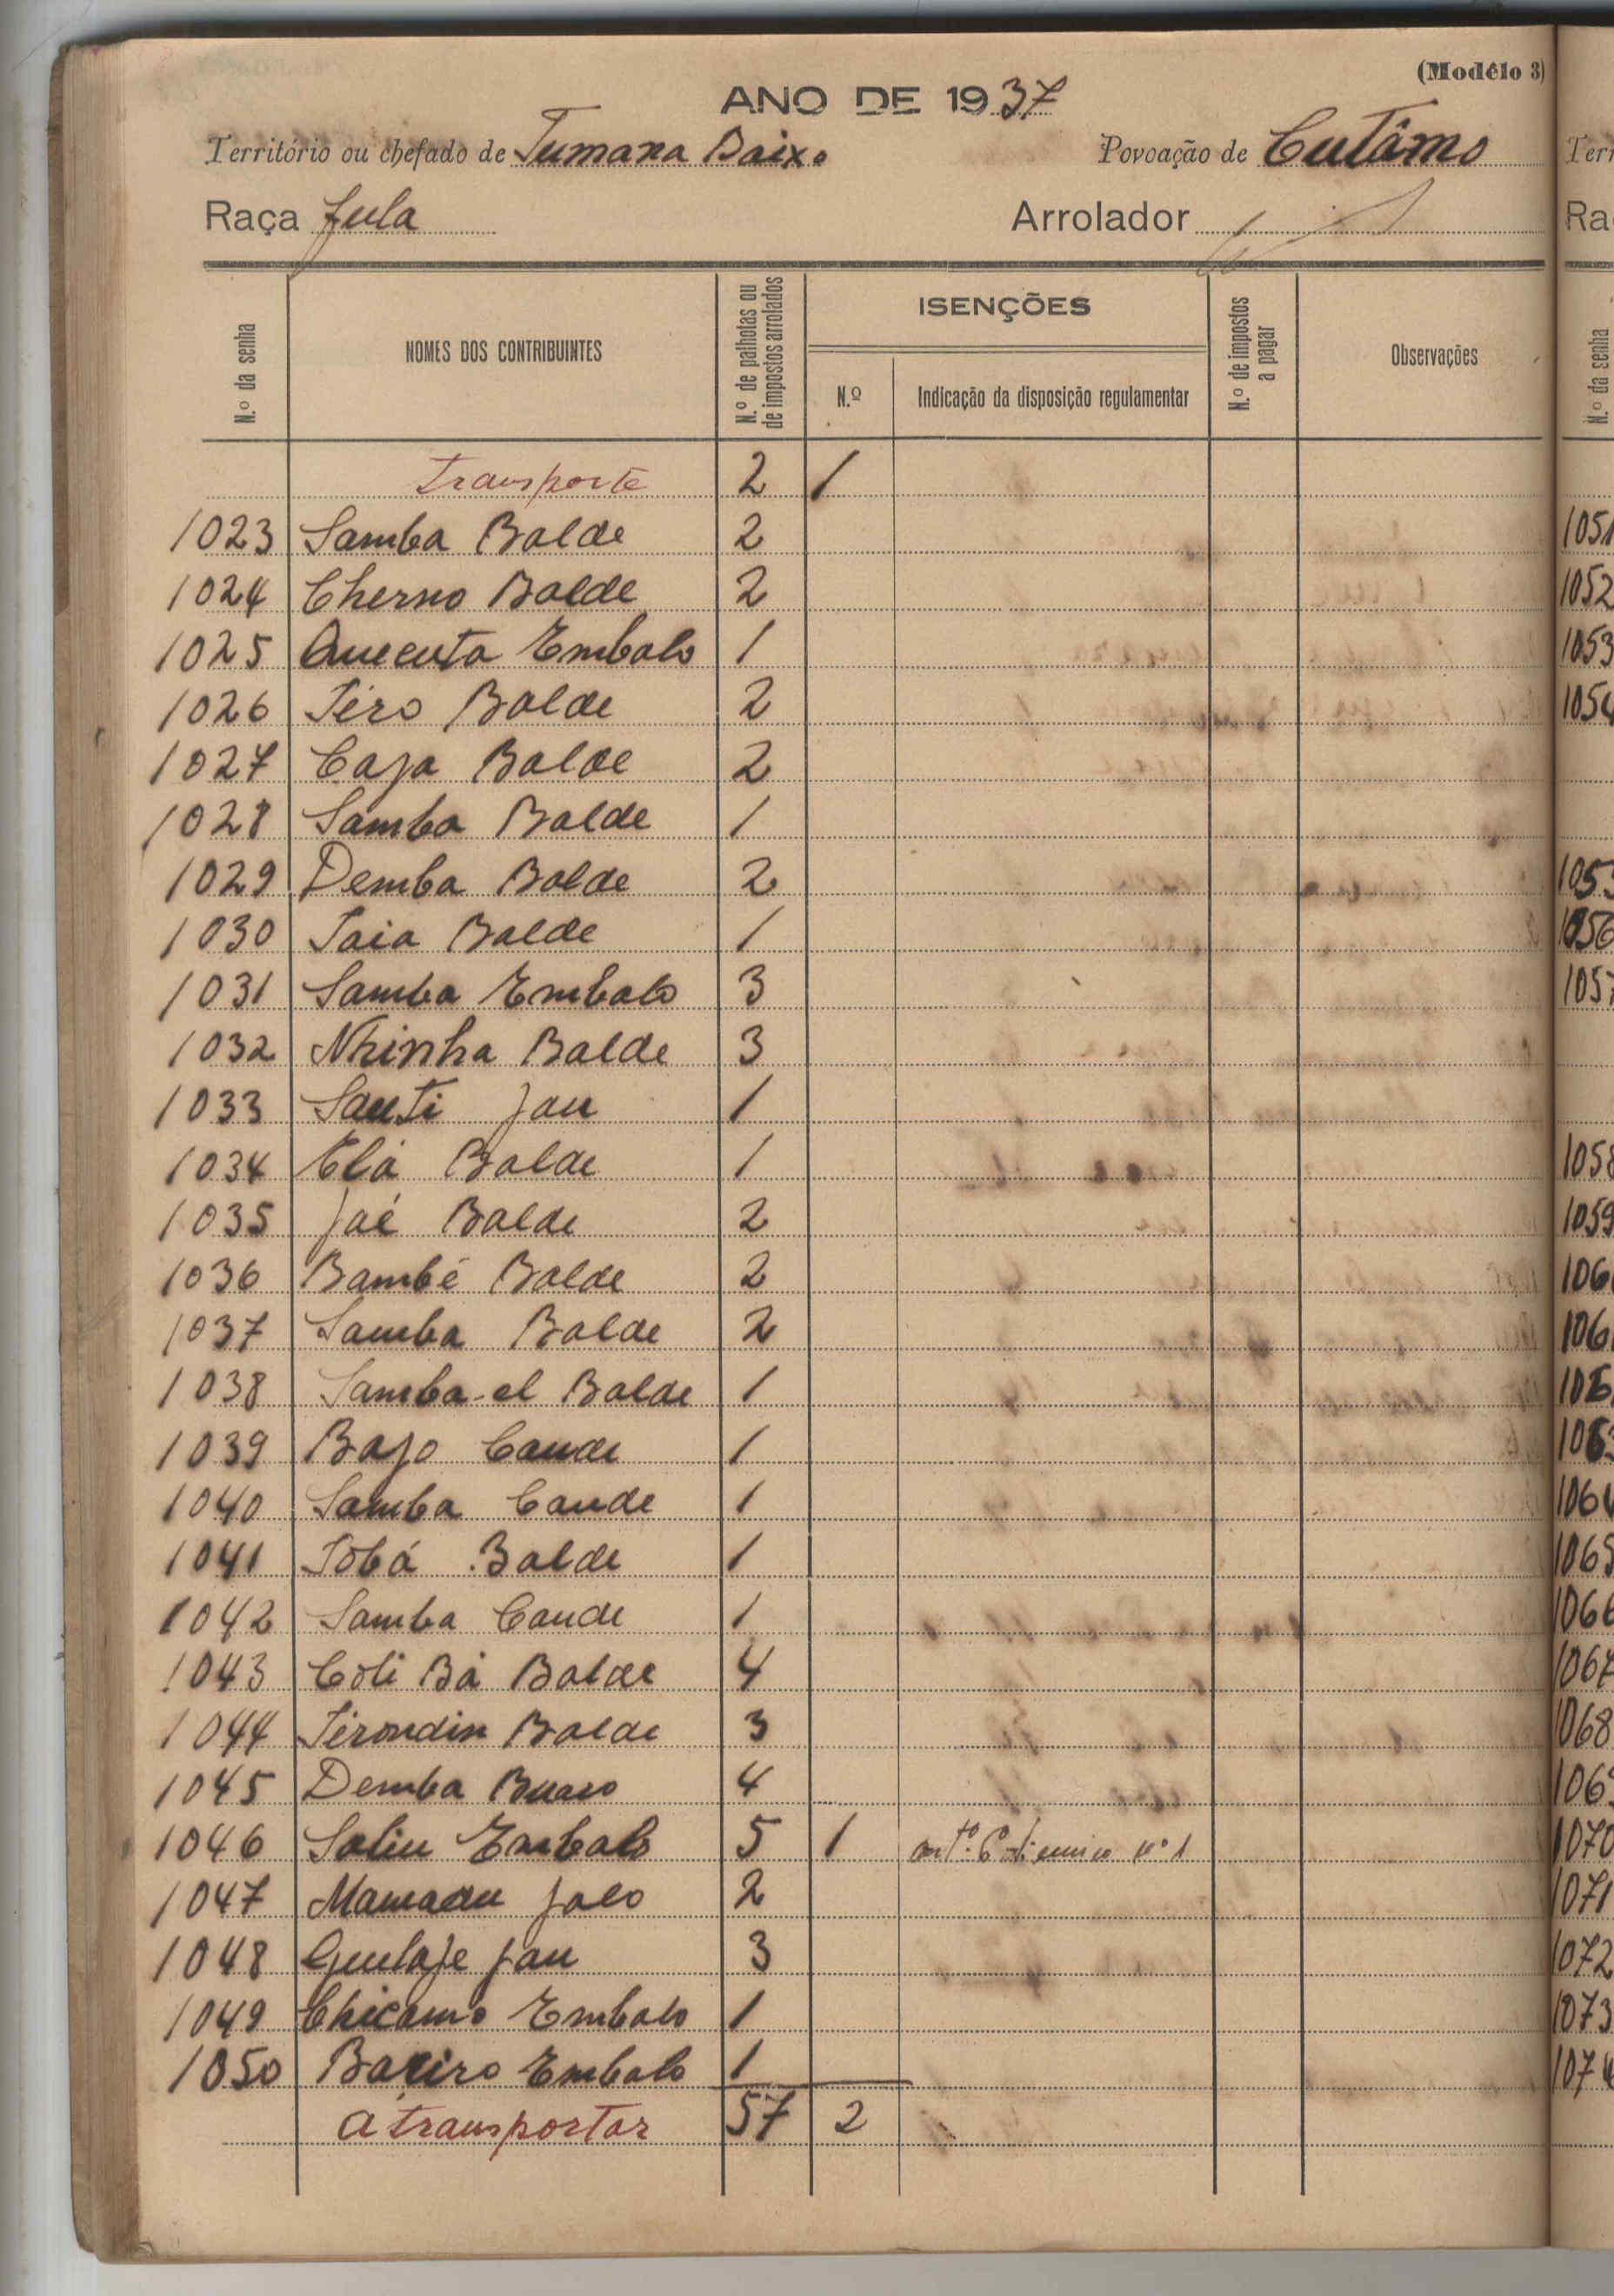 (Modêlo 3)
ANO DE 1937
Território ou chefado de Tumana Baixo Povoação de Cutâmo
Raça fula Arrolador
N.º da senha
NOMES DOS CONTRIBUINTES
N.º de palhotas ou de impostos arrolados
ISENÇÕES
N.º
Indicação da disposição regulamentar
N.º de impostos a pagar
Observações
Transporte 2 1
1023 Samba Balde 2
1024 Cherno Balde 2
1025 Embalo 1
1026 Béro Balde 2
1027 Caja Balde 2
1028 Samba Balde 1
1029 Demba Balde 2
1030 Saia Balde 1
1031 Samba Embalo 3
1032 Nhinha Balde 3
1033 Sauti Jau 1
1034 Elá Balde 1
1035 Jaé Balde 2
1036 Bambé Balde 2
1037 Samba Balde 2
1038 Samba-el Balde 1
1039 Bajo Cande 1
1040 Samba Cande 1
1041 Tobá Balde 1
1042 Samba Cande 1
1043 Coli Bá Balde 4
1044 Balde 3
1045 Demba Buaro 4
1046 Saliu Embalo 5 1 artº. 6º nº 1
1047 Mamadu Jalo 2
1048 Guelaje Jau 3
1049 Chicamo Embalo 1
1050 Baciro Embalo 1
A transportar 57 2
Terr
Ra
N.º da senha
1052
1053
1059
1070
1071
1072
1073